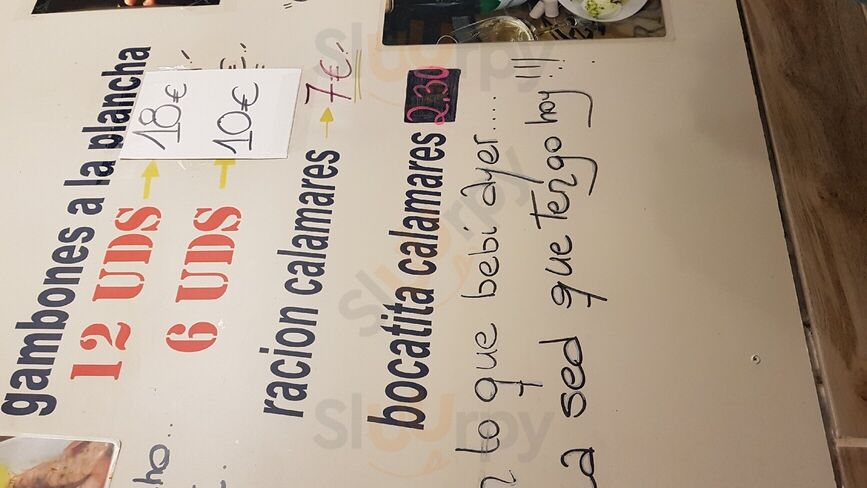 gambones a la plancha
12 UDS → 18€
6 UDS → 10€
racion calamares → 7€.
bocatita calamares 2.30
lo que bebí ayer....
sed que tengo hoy!!!
Slurrpy
Slurrpy
Slurrpy
Slurrpy